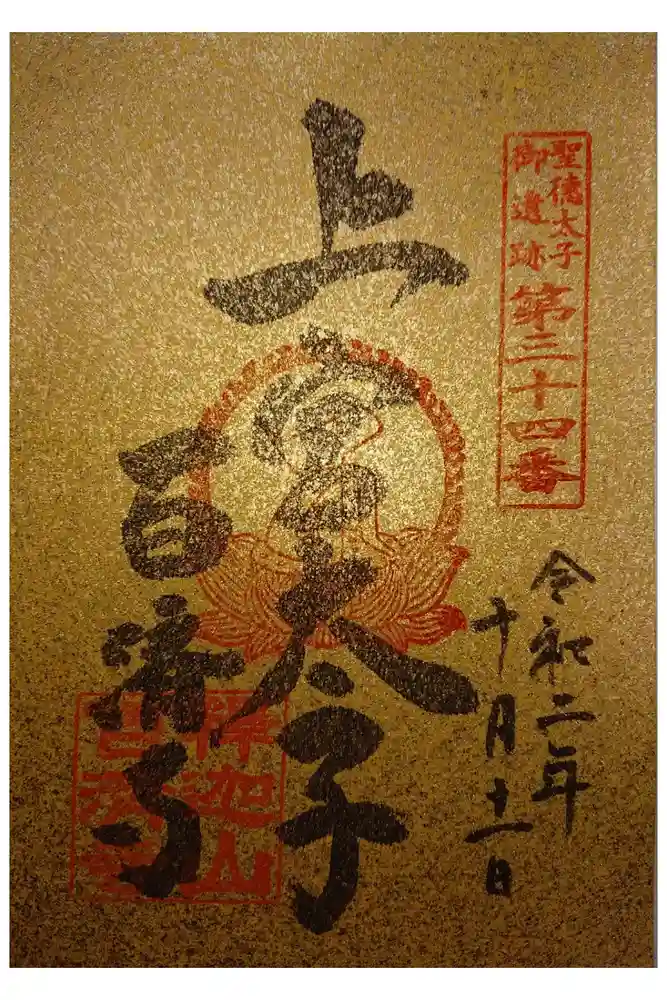 聖徳太子
御遺跡
第三十四番
令和二年
十月十一日
上宮太子
百済寺
釋迦山
百済寺